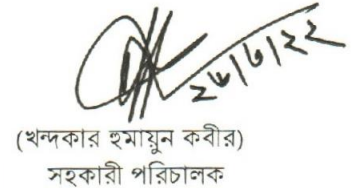 ২৮/৬/২২
(খন্দকার হুমায়ুন কবীর)
সহকারী পরিচালক